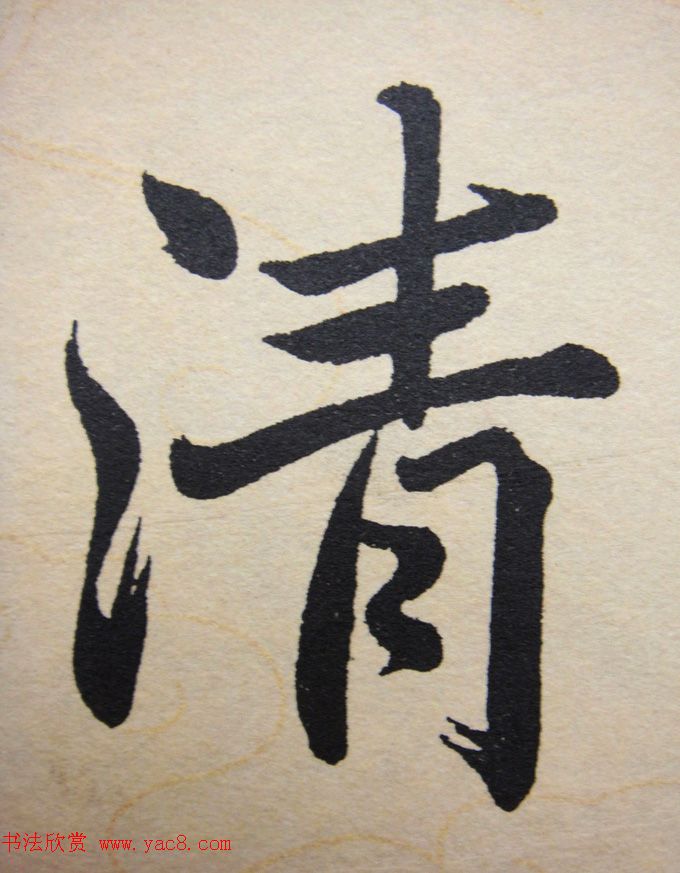 清
书法欣赏 www.yac8.com